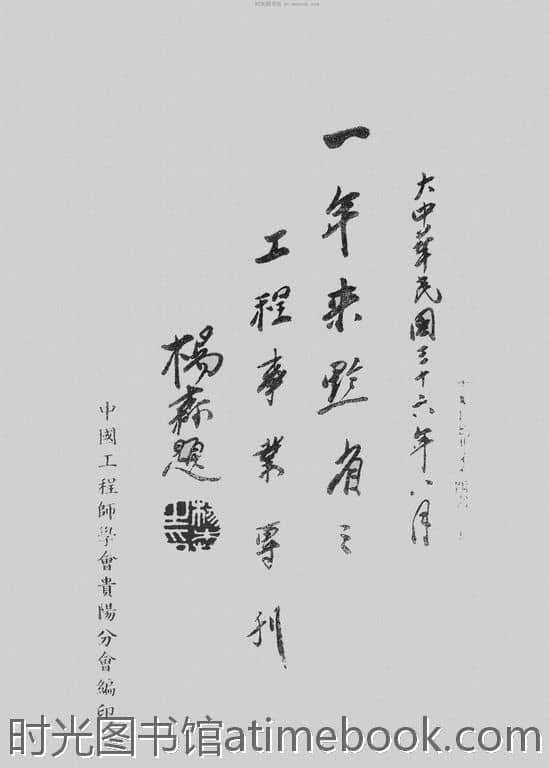 时光图书馆
大中華民國三十六年八月
一年来黔省之
工程事業專刊
楊森題
中國工程師學會貴陽分會編印
时光图书馆atimebook.com